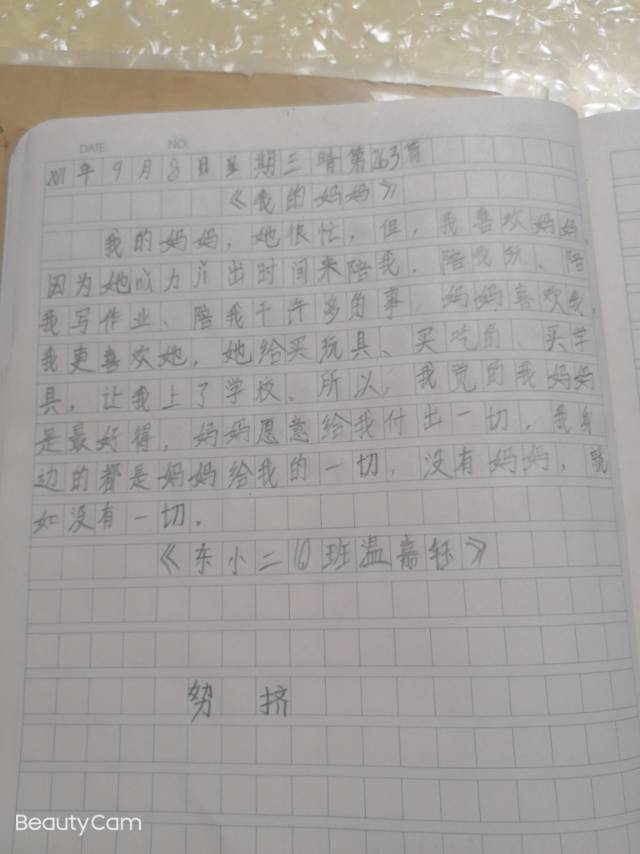 DATE: NO:
年9月8日星期三晴第263篇
《我的妈妈》
我的妈妈，她很忙，但，我喜欢妈妈，
因为她nǔ力jǐ出时间来陪我，陪我玩、陪
我写作业、陪我干许多的事，妈妈喜欢我，
我更喜欢她，她给买玩具、买吃的、买学
具，让我上了学校，所以，我觉的我妈妈
是最好得，妈妈愿意给我付出一切，我身
边的都是妈妈给我的一切，没有妈妈，就
如没有一切。
《东小二(6)班温嘉钰》
努 挤
BeautyCam